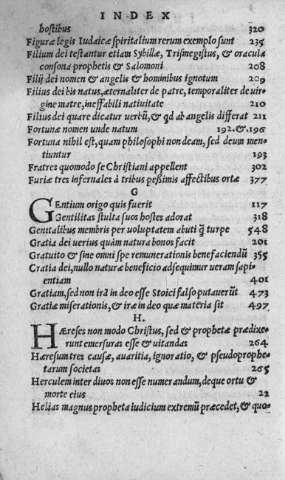 INDEX
hostibus 320
Figuræ legis Iudaicæ spiritalium rerum exemplo sunt 235
Filium dei testantur etiam Sybillæ, Trismegistus, & oracula
consona prophetis & Salomoni 208
Filij dei nomen & angelis & hominibus ignotum 209
Filius dei bis natus, æternaliter de patre, temporaliter de uir-
gine matre, ineffabili natiuitate 210
Filius dei quare dicatur uerbũ, & qd ab angelis differat 211
Fortunæ nomen unde natum 192. & .196
Fortuna nihil est, quam philosophi non deam, sed deum men-
tiuntur 193
Fratres quomodo se Christiani appellent 302
Furiæ tres infernales à tribus pessimis affectibus ortæ 377
G
GEntium origo quis fuerit 117
Gentilitas stulta suos hostes adorat 318
Genitalibus membris per uoluptatem abuti q̃ turpe 548
Gratia dei uerius quàm natura bonos facit 201
Gratuito & sine omni spe remunerationis benefaciendũ 355
Gratia dei, nullo naturæ beneficio adsequimur ueram sapi-
entiam 401
Gratiam, sed non irã in deo esse Stoici falso putauerũt 473
Gratiæ miserationis, & iræ in deo quæ materia sit 497
H.
HÆreses non modo Christus, sed & prophetæ prædixe-
runt emersuras esse & uitandas 264
Hæresum tres causæ, auaritia, ignoratio, & pseudoprophe-
tarum societas 265
Herculem inter diuos non esse numerandum, deque ortu &
morte eius 22
Helias magnus propheta iudicium extremũ præcedet, & quo-